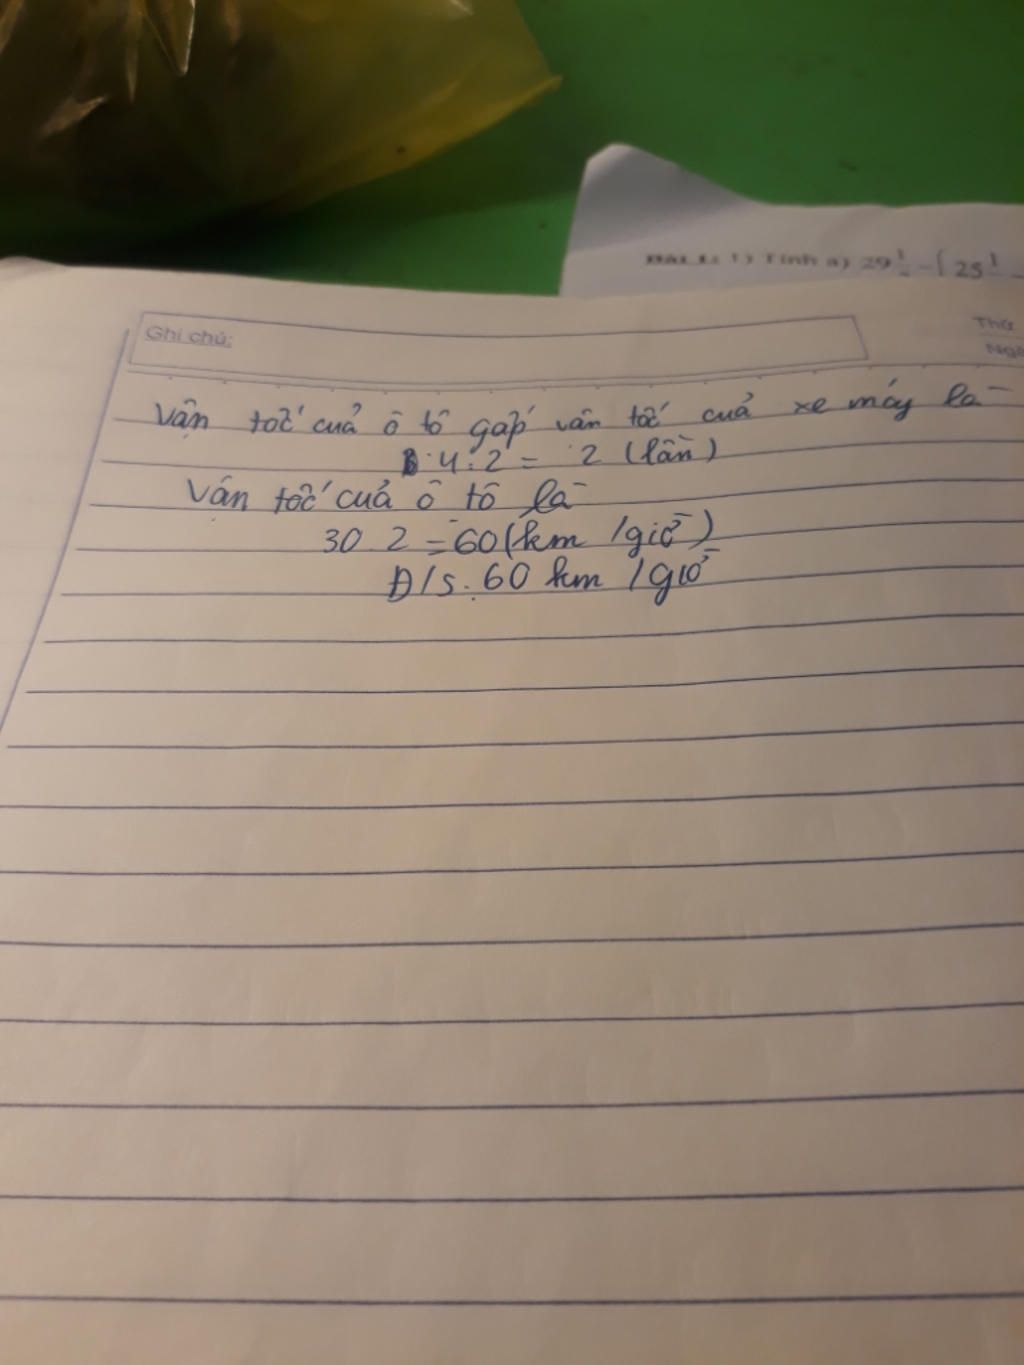 BÀI 1: 1) Tính a) 29 1 - ( 25 1
Ghi chú:
Thứ
Ngà
Vận tốc của ô tô gấp vận tốc của xe máy là
4 : 2 = 2 (lần)
Vận tốc của ô tô là
30 . 2 = 60 (km /giờ)
Đ/s: 60 km /giờ